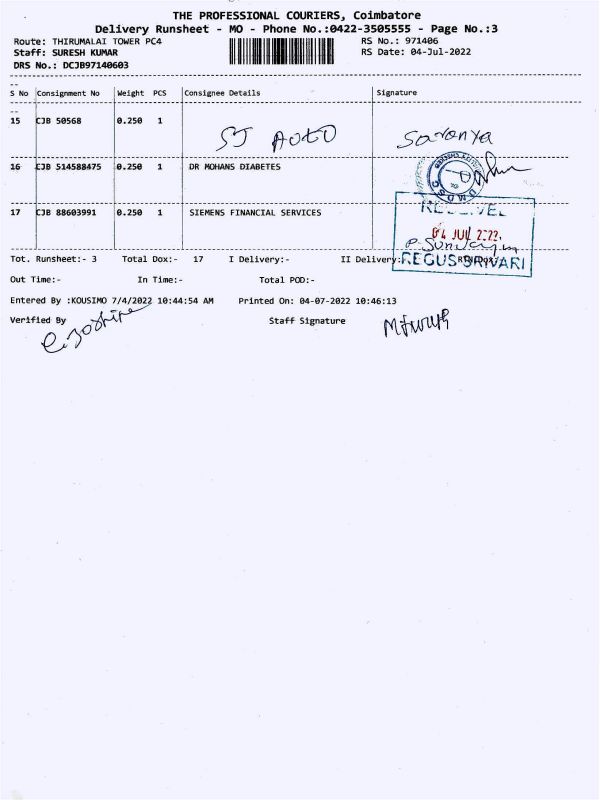 THE PROFESSIONAL COURIERS, Coimbatore
Delivery Runsheet - MO - Phone No.:0422-3505555 - Page No.:3
Route: THIRUMALAI TOWER PC4 RS No.: 971406
Staff: SURESH KUMAR RS Date: 04-Jul-2022
DRS No.: DCJB97140603
S No Consignment No Weight PCS Consignee Details Signature
15 CJB 50568 0.250 1 SJ AUTO Saranya
16 CJB 514588475 0.250 1 DR MOHANS DIABETES
17 CJB 88603991 0.250 1 SIEMENS FINANCIAL SERVICES
04 JUL 2022
Tot. Runsheet:- 3 Total Dox:- 17 I Delivery:- II Delivery:-
REGUS SRIVARI
Out Time:- In Time:- Total POD:-
Entered By :KOUSIMO 7/4/2022 10:44:54 AM Printed On: 04-07-2022 10:46:13
Verified By Staff Signature